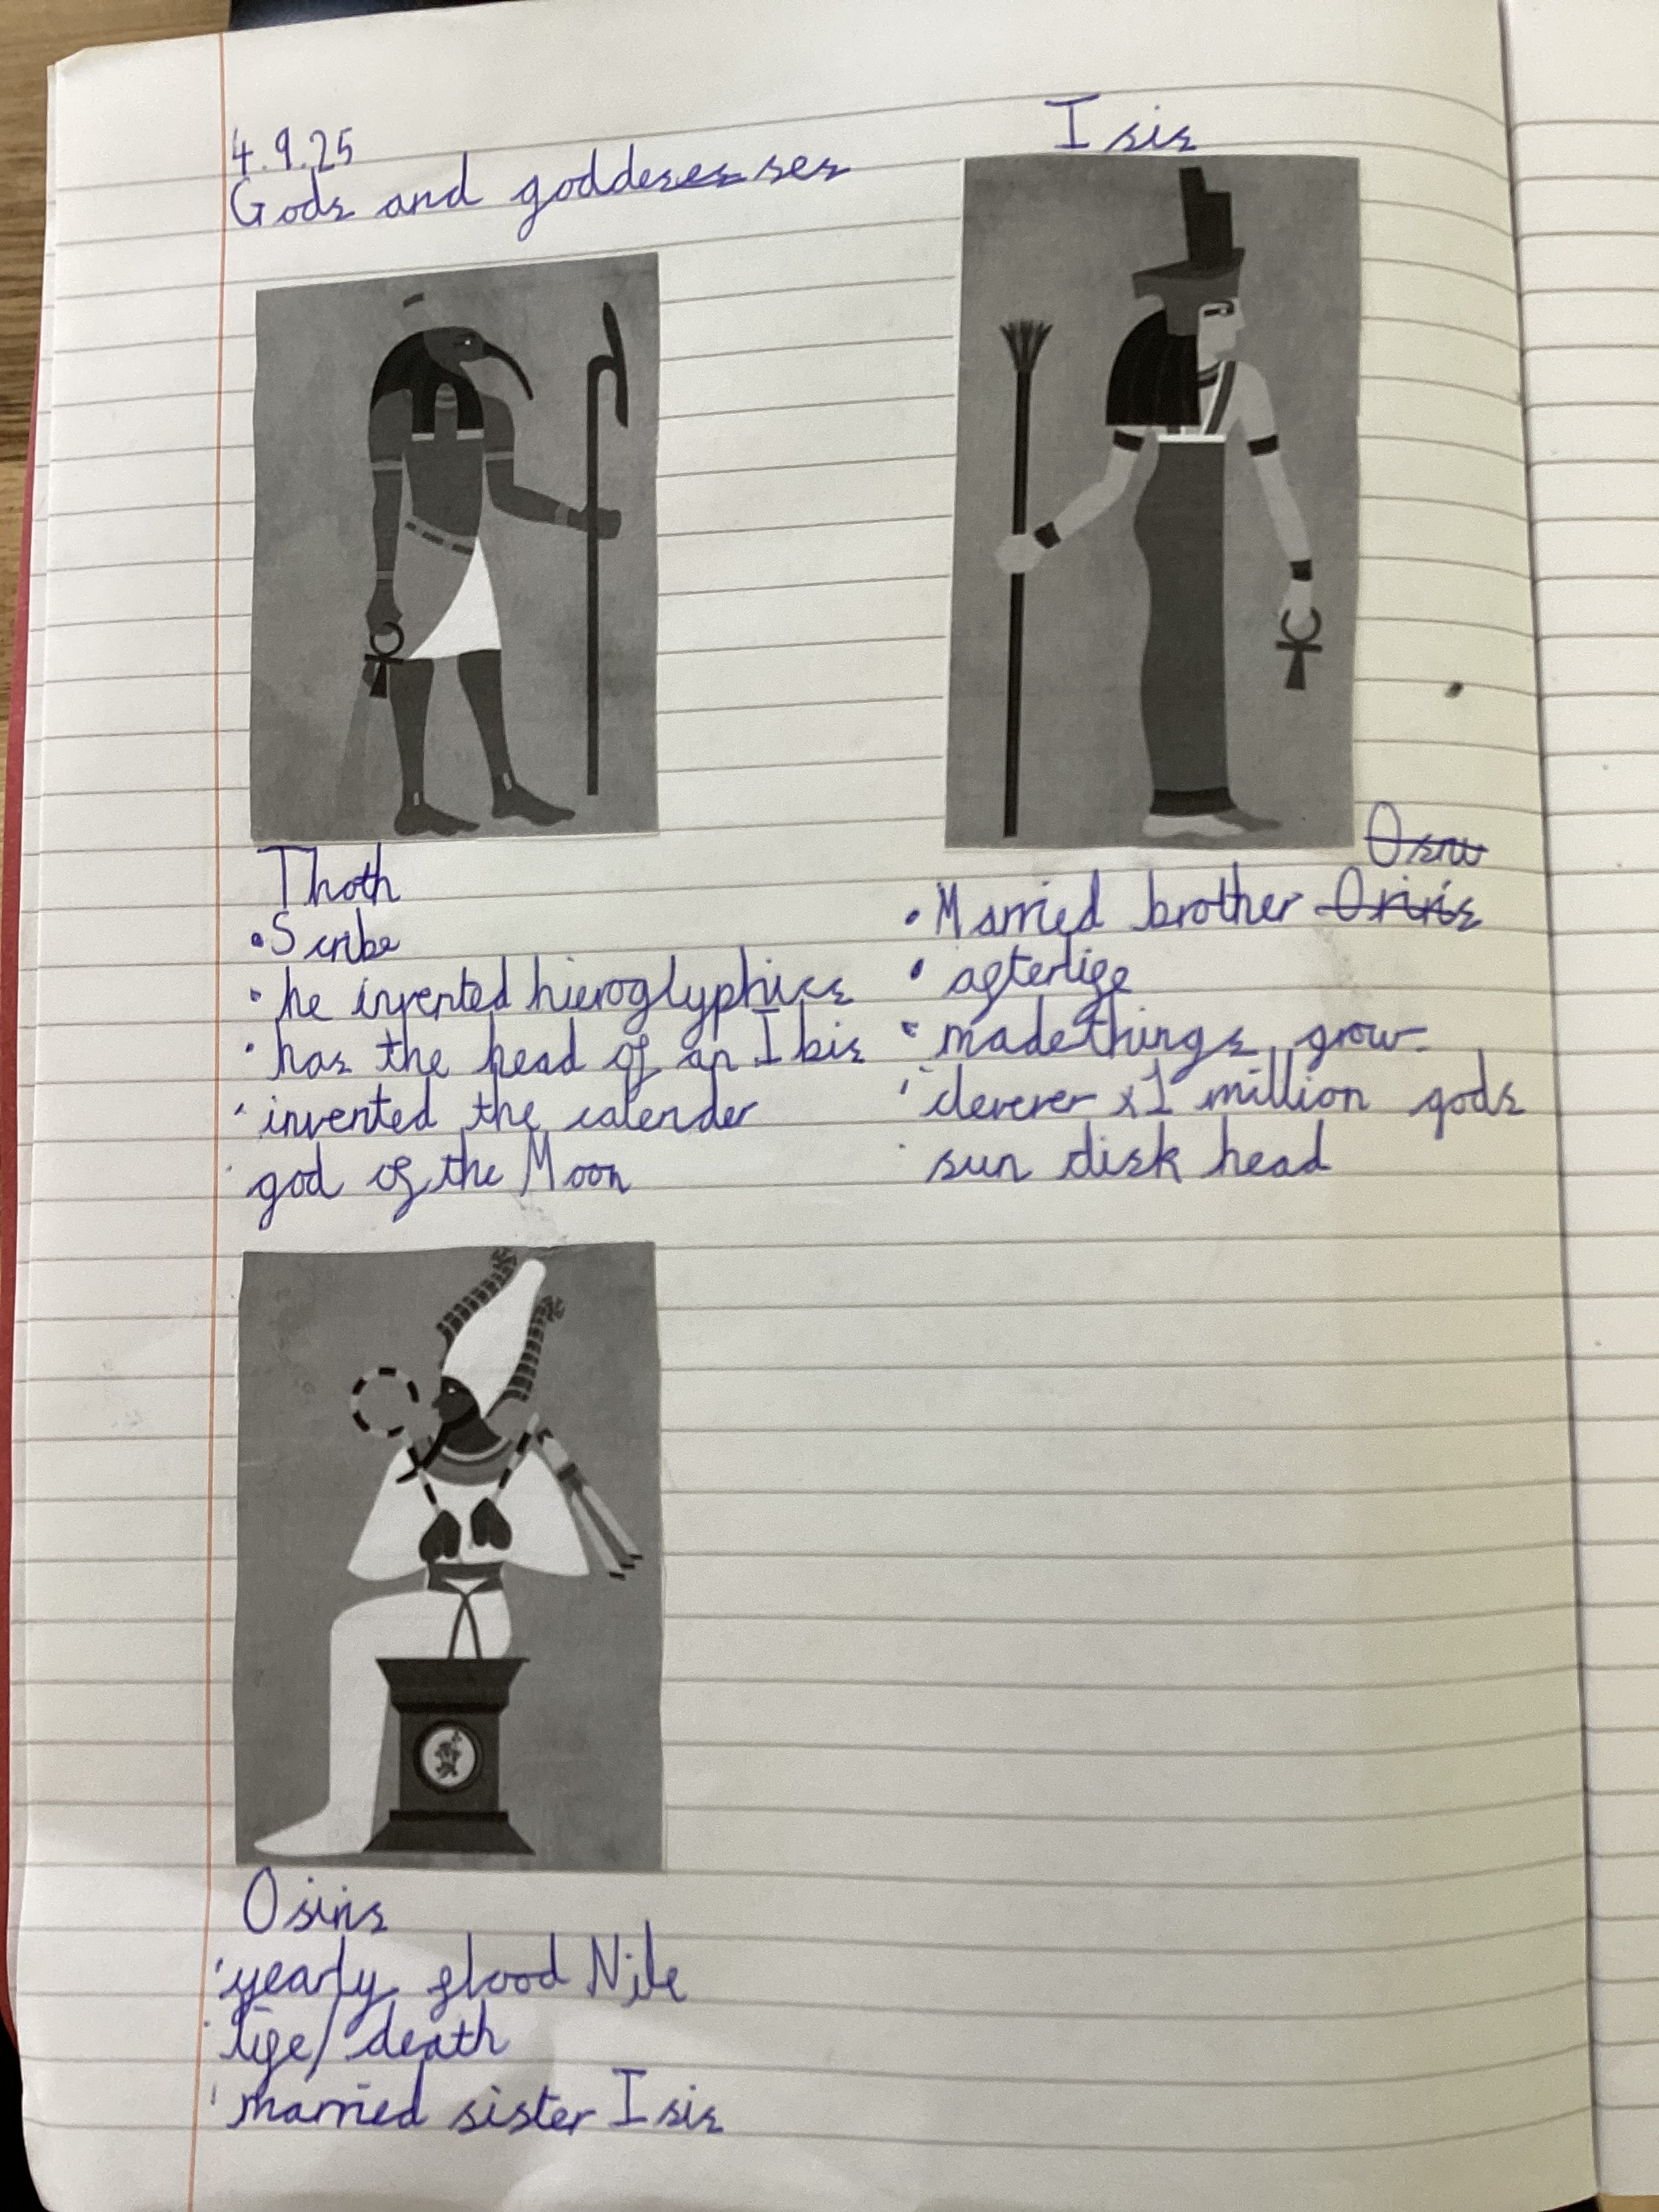 4.9.25
Gods and goddesses
Isis
Thoth
• Scribe
• he invented hieroglyphics
• has the head of an Ibis
• invented the calender
• god of the Moon
• Married brother
• afterlife
• made things grow
• cleverer x1 million gods
• sun disk head
Osiris
• yearly flood Nile
• life/death
• married sister Isis